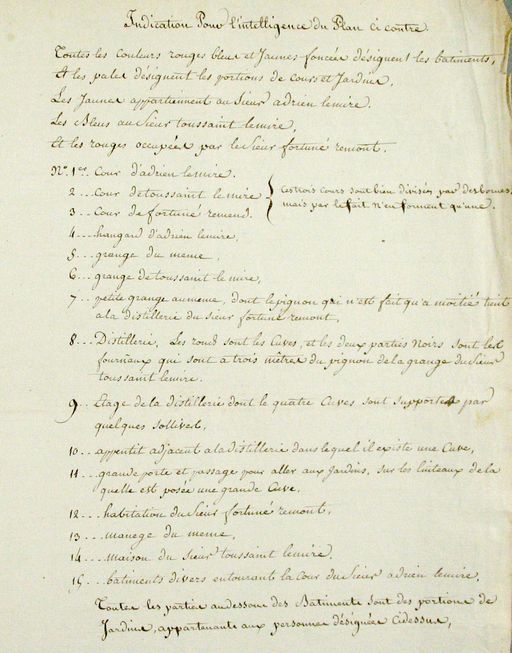 Indication Pour l'intelligence du Plan ci contre.
Toutes les couleurs rouges bleus et Jaunes foncée désignent les batiments,
Et les pales désignent les portions de cours et Jardins.
Les Jaunes appartiennent au Sieur adrien lemire.
Les Bleus au Sieur toussaint lemire,
Et les rouges occupées par le Sieur fortuné remont.
No. 1er. Cour d'adrien lemire.
2... Cour de toussaint le mire
3... Cour de fortune remend.
Ces trois cours sont bien divisées par des bornes,
mais par le fait n'en forment qu'une.
4... hangard d'adrien lemire,
5... grange du meme,
6... grange de toussaint le mire,
7... petite grange au meme, dont le pignon qui n'est fait qu'a moitié tient
a la distillerie du Sieur fortuné remont,
8... Distillerie, Les rond sont les Cuves, et les deux parties Noirs sont les
fourneaux qui sont a trois mètres du pignon de la grange du Sieur
toussaint lemire.
9... Etage de la distillerie dont le quatre Cuves sont supportés par
quelques sollives,
10... appentit adjacent a la distillerie dans lequel il existe une Cuve,
11... grande porte et passage pour aller aux Jardins, sur les linteaux de la
quelle est posée une grande Cuve,
12... habitation du Sieur fortuné remont,
13... manege du meme,
14... maison du Sieur toussaint lemire,
15... batiments divers entourant la Cour du Sieur adrien lemire,
Toutes les parties au dessous des Batiments sont des portions de
Jardins, appartenants aux personnes désignées Cidessus,